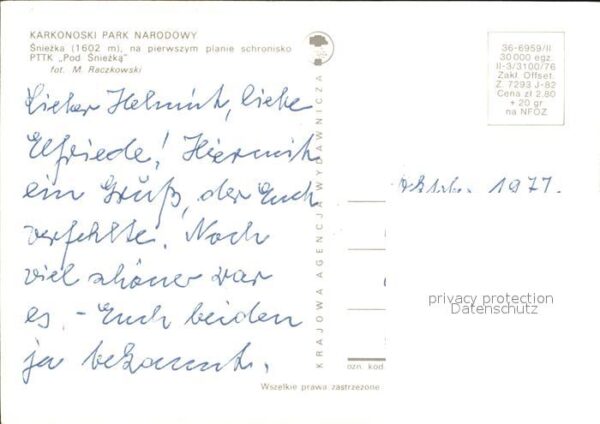 KARKONOSKI PARK NARODOWY
Śnieżka (1602 m), na pierwszym planie schronisko
PTTK „Pod Śnieżką"
fot. M. Raczkowski
Lieber Helmut, liebe
Elfriede! Hiermit
ein Gruß, der Euch
verfehlte. Noch
viel schöner war
es. - Euch beiden
ja bekannt.
KRAJOWA AGENCJA WYDAWNICZA
36-6959/II
30 000 egz.
II-3/3100/76
Zakł. Offset.
Z 7293 J-82
Cena zł 2.80
+ 20 gr
na NFOZ
Oktob. 1977.
privacy protection
Datenschutz
ozn. kod
Wszelkie prawa zastrzeżone